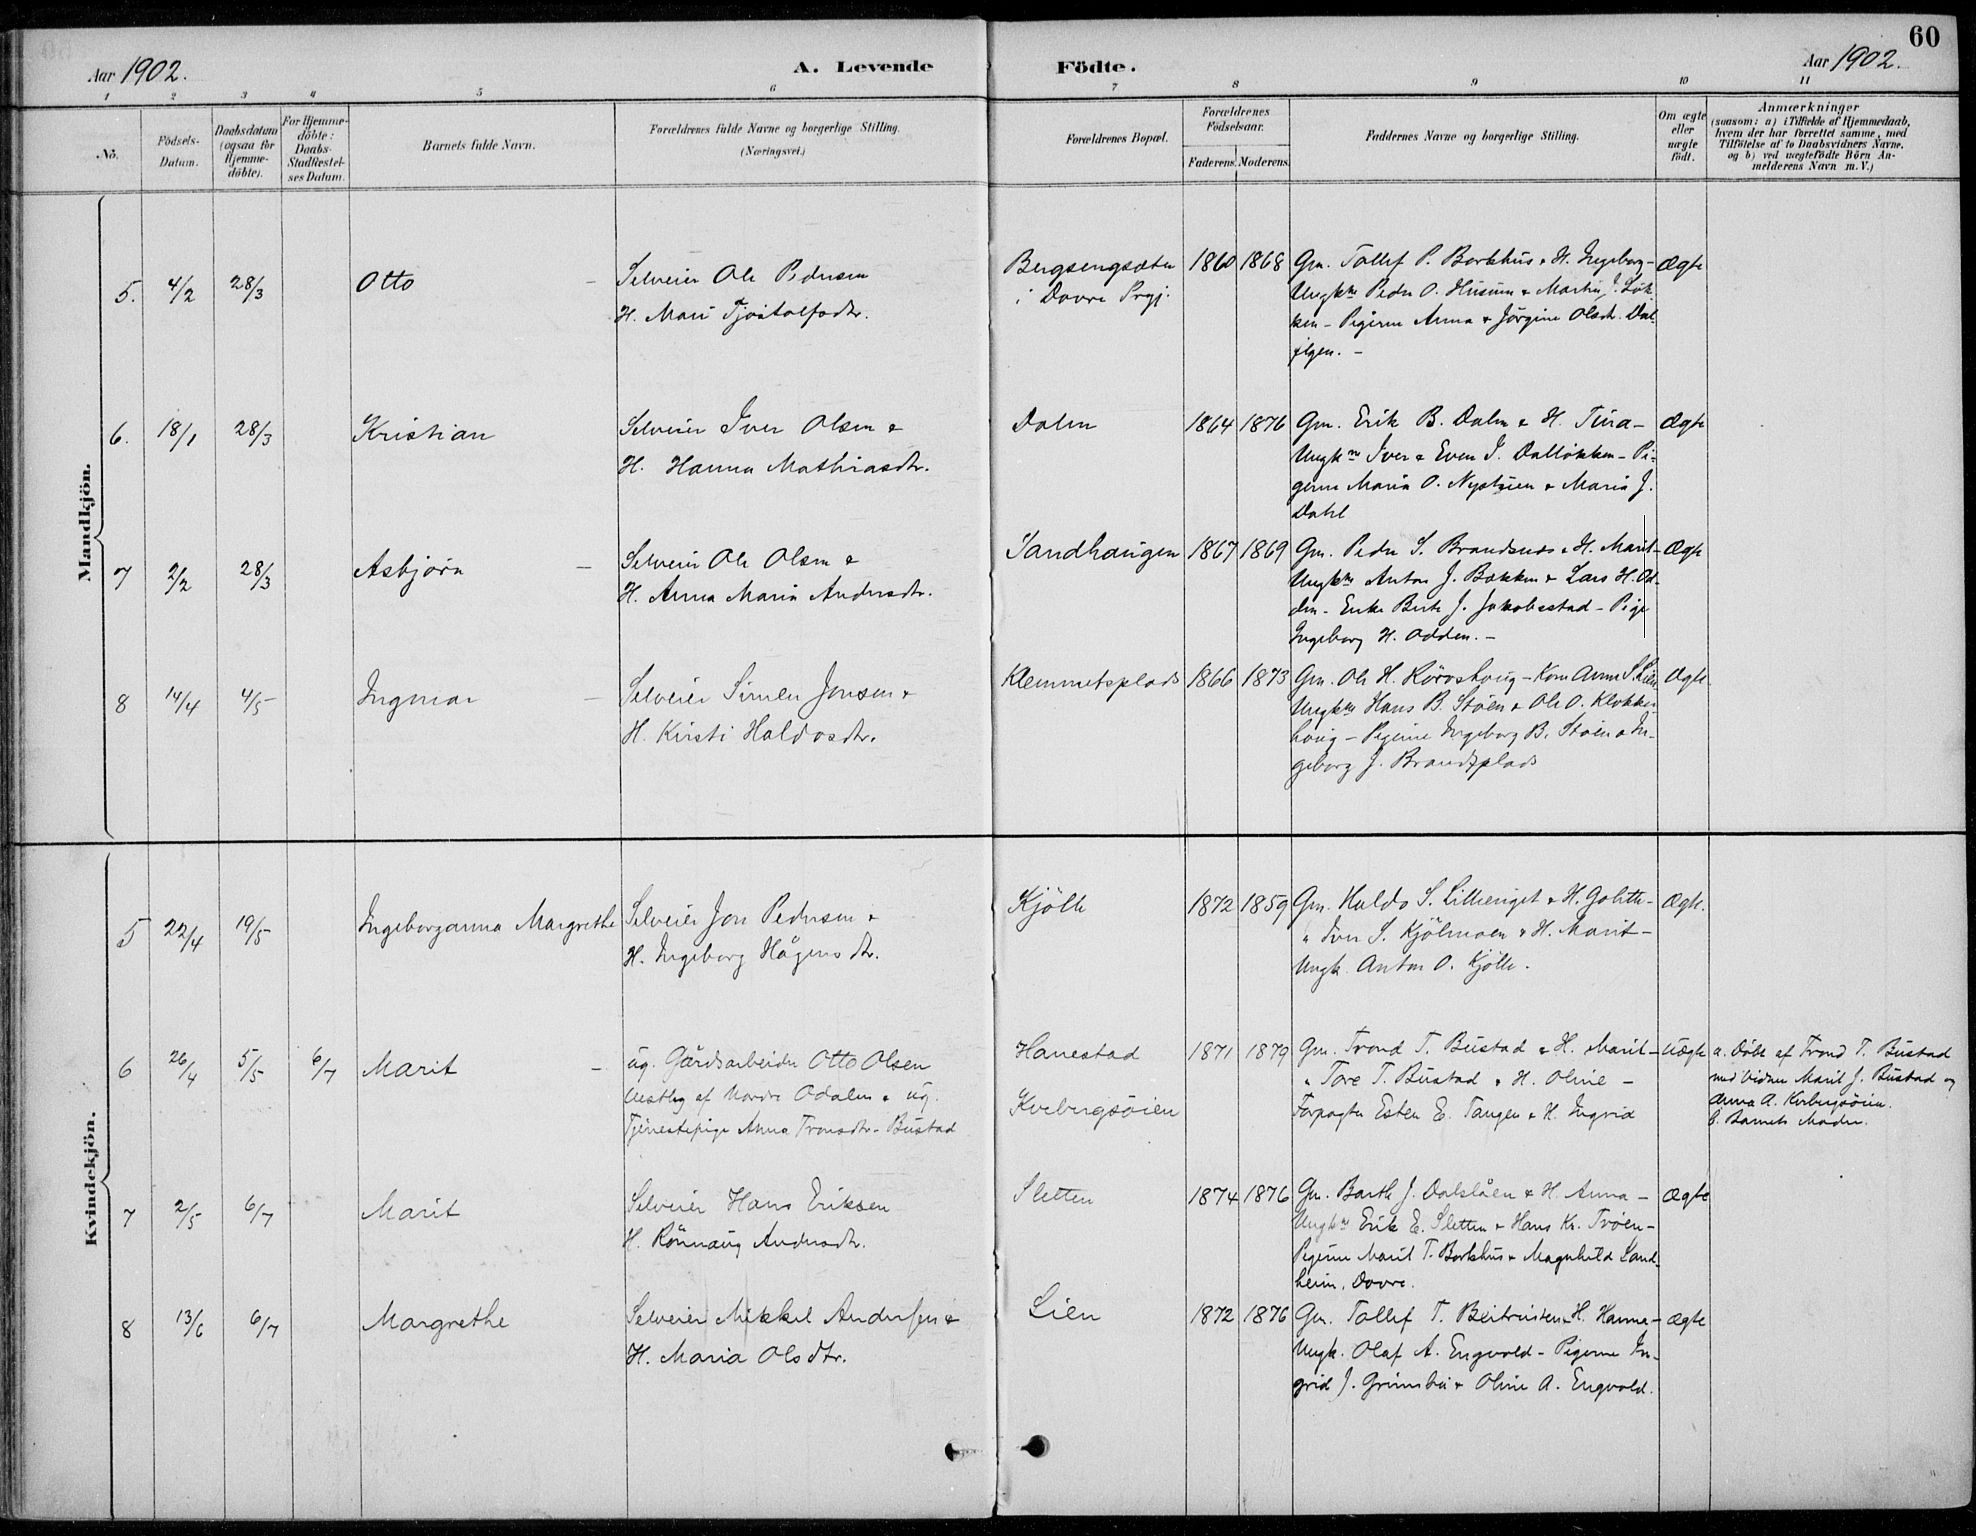 60
Aar 1902.
A. Levende Födte.
Aar 1902.
1 2 3 4 5 6 7 8 9 10 11
No.
Födsels-
Datum.
Daabsdatum
(ogsaa for
Hjemme-
döbte).
For Hjemme-
döbte:
Daabs-
Stadfæstel-
ses Datum.
Barnets fulde Navn.
Forældrenes fulde Navne og borgerlige Stilling.
(Næringsvei.)
Forældrenes Bopæl.
Forældrenes
Födselsaar.
Faderens. Moderens.
Faddernes Navne og borgerlige Stilling.
Om ægte
eller
uægte
födt.
Anmærkninger
(saasom: a) i Tilfælde af Hjemmedaab,
hvem der har forrettet samme, med
Tilföielse af to Daabsvidners Navne.
og b) ved uægtefödte Börn An-
melderens Navn m. V.)
Mandkjön.
5. 4/2 28/3 Otto
Selveier Ole Pedersen
H. Mari Tjøstolfsdtr.
Bergsengsæter
i Dovre Prgj.
1860 1868
Gm. Tollef P. Borkhus & H. Ingeborg -
Ungkne Peder O. Husum & Martin J. Løk-
ken - Pigerne Anna & Jörgine Olsdt. Dal-
. -
Ægte
6. 18/1 28/3 Kristian
Selveier Iver Olsen &
H. Hanna Mathiasdtr.
Dalen
1864 1876
Gm. Erik B. Dalen & H. Tina -
Ungkne Iver & Even I. Dalløkken - Pi-
gerne Maria O. Nystuen & Maria J.
Dahl
Ægte
7 2/2 28/3 Asbjørn
Selveier Ole Olsen &
H. Anna Maria Andersdtr.
Sandhaugen
1867 1869
Gm. Peder S. Brandsnes & H. Marit -
Ungkne Anton J. Bakken & Lars H. Od-
den - Enke Berte J. Jakobsstad - Pige
Ingeborg H. Odden. -
Ægte
8 14/4 4/5 Ingmar
Selveier Simen Jonsen &
H. Kirsti Haldosdtr.
Klemmetsplads
1866 1873
Gm. Ole H. Rörvshoug - Kone Anne S. Lien
Ungkne Hans B. Stöen & Ole O. Klokker-
houg - Pigerne Ingeborg B. Stöen & In-
geborg J. Brandsplads
Ægte
Kvindekjön.
5 22/4 19/5 Ingeborganna Margrethe
Selveier Jon Pedersen &
H. Ingeborg Hågensdtr.
Kjölle
1872 1859
Gm. Haldo S. Lilleenget & H. Golette -
" Iver S. Kjölmoen & H. Marit -
Ungk. Anton O. Kjölle.
Ægte.
6 26/4 5/5 6/7 Marit
ug. Gårdsarbeider Otto Olsen
Vestby af Nordre Odalen & ug.
Tjenestepige Anna Tronsdtr. Bustad
Hanestad
Kvebergsöien
1871 1879
Gm. Trond T. Bustad & H. Marit -
" Tore T. Bustad & H. Oline -
Forpagter Esten E. Tangen & H. Ingrid
Uægte
a. Döbt af Trond T. Bustad
med Vidner Marit J. Bustad og
Anna A. Kvebergsöien.
b. Barnets Moder.
7 2/5 6/7 Marit
Selveier Hans Eriksen
H. Rönnaug Andersdtr.
Sletten
1874 1876
Gm. Barth J. Dalslåen & H. Anna -
Ungkne Erik E. Sletten & Hans Kr. Tröen -
Pigerne Marit T. Borkhus & Magnhild Sand-
heim, Dovre.
Ægte
8 13/6 6/7 Margrethe
Selveier Mikkel Andersen &
H. Maria Olsdtr.
Lien
1872 1876
Gm. Tollef T. & H. Hanna -
Ungk. Olaf A. Engvold - Pigerne In-
grid J. Grimsbu & Oline A. Engvold.
Ægte